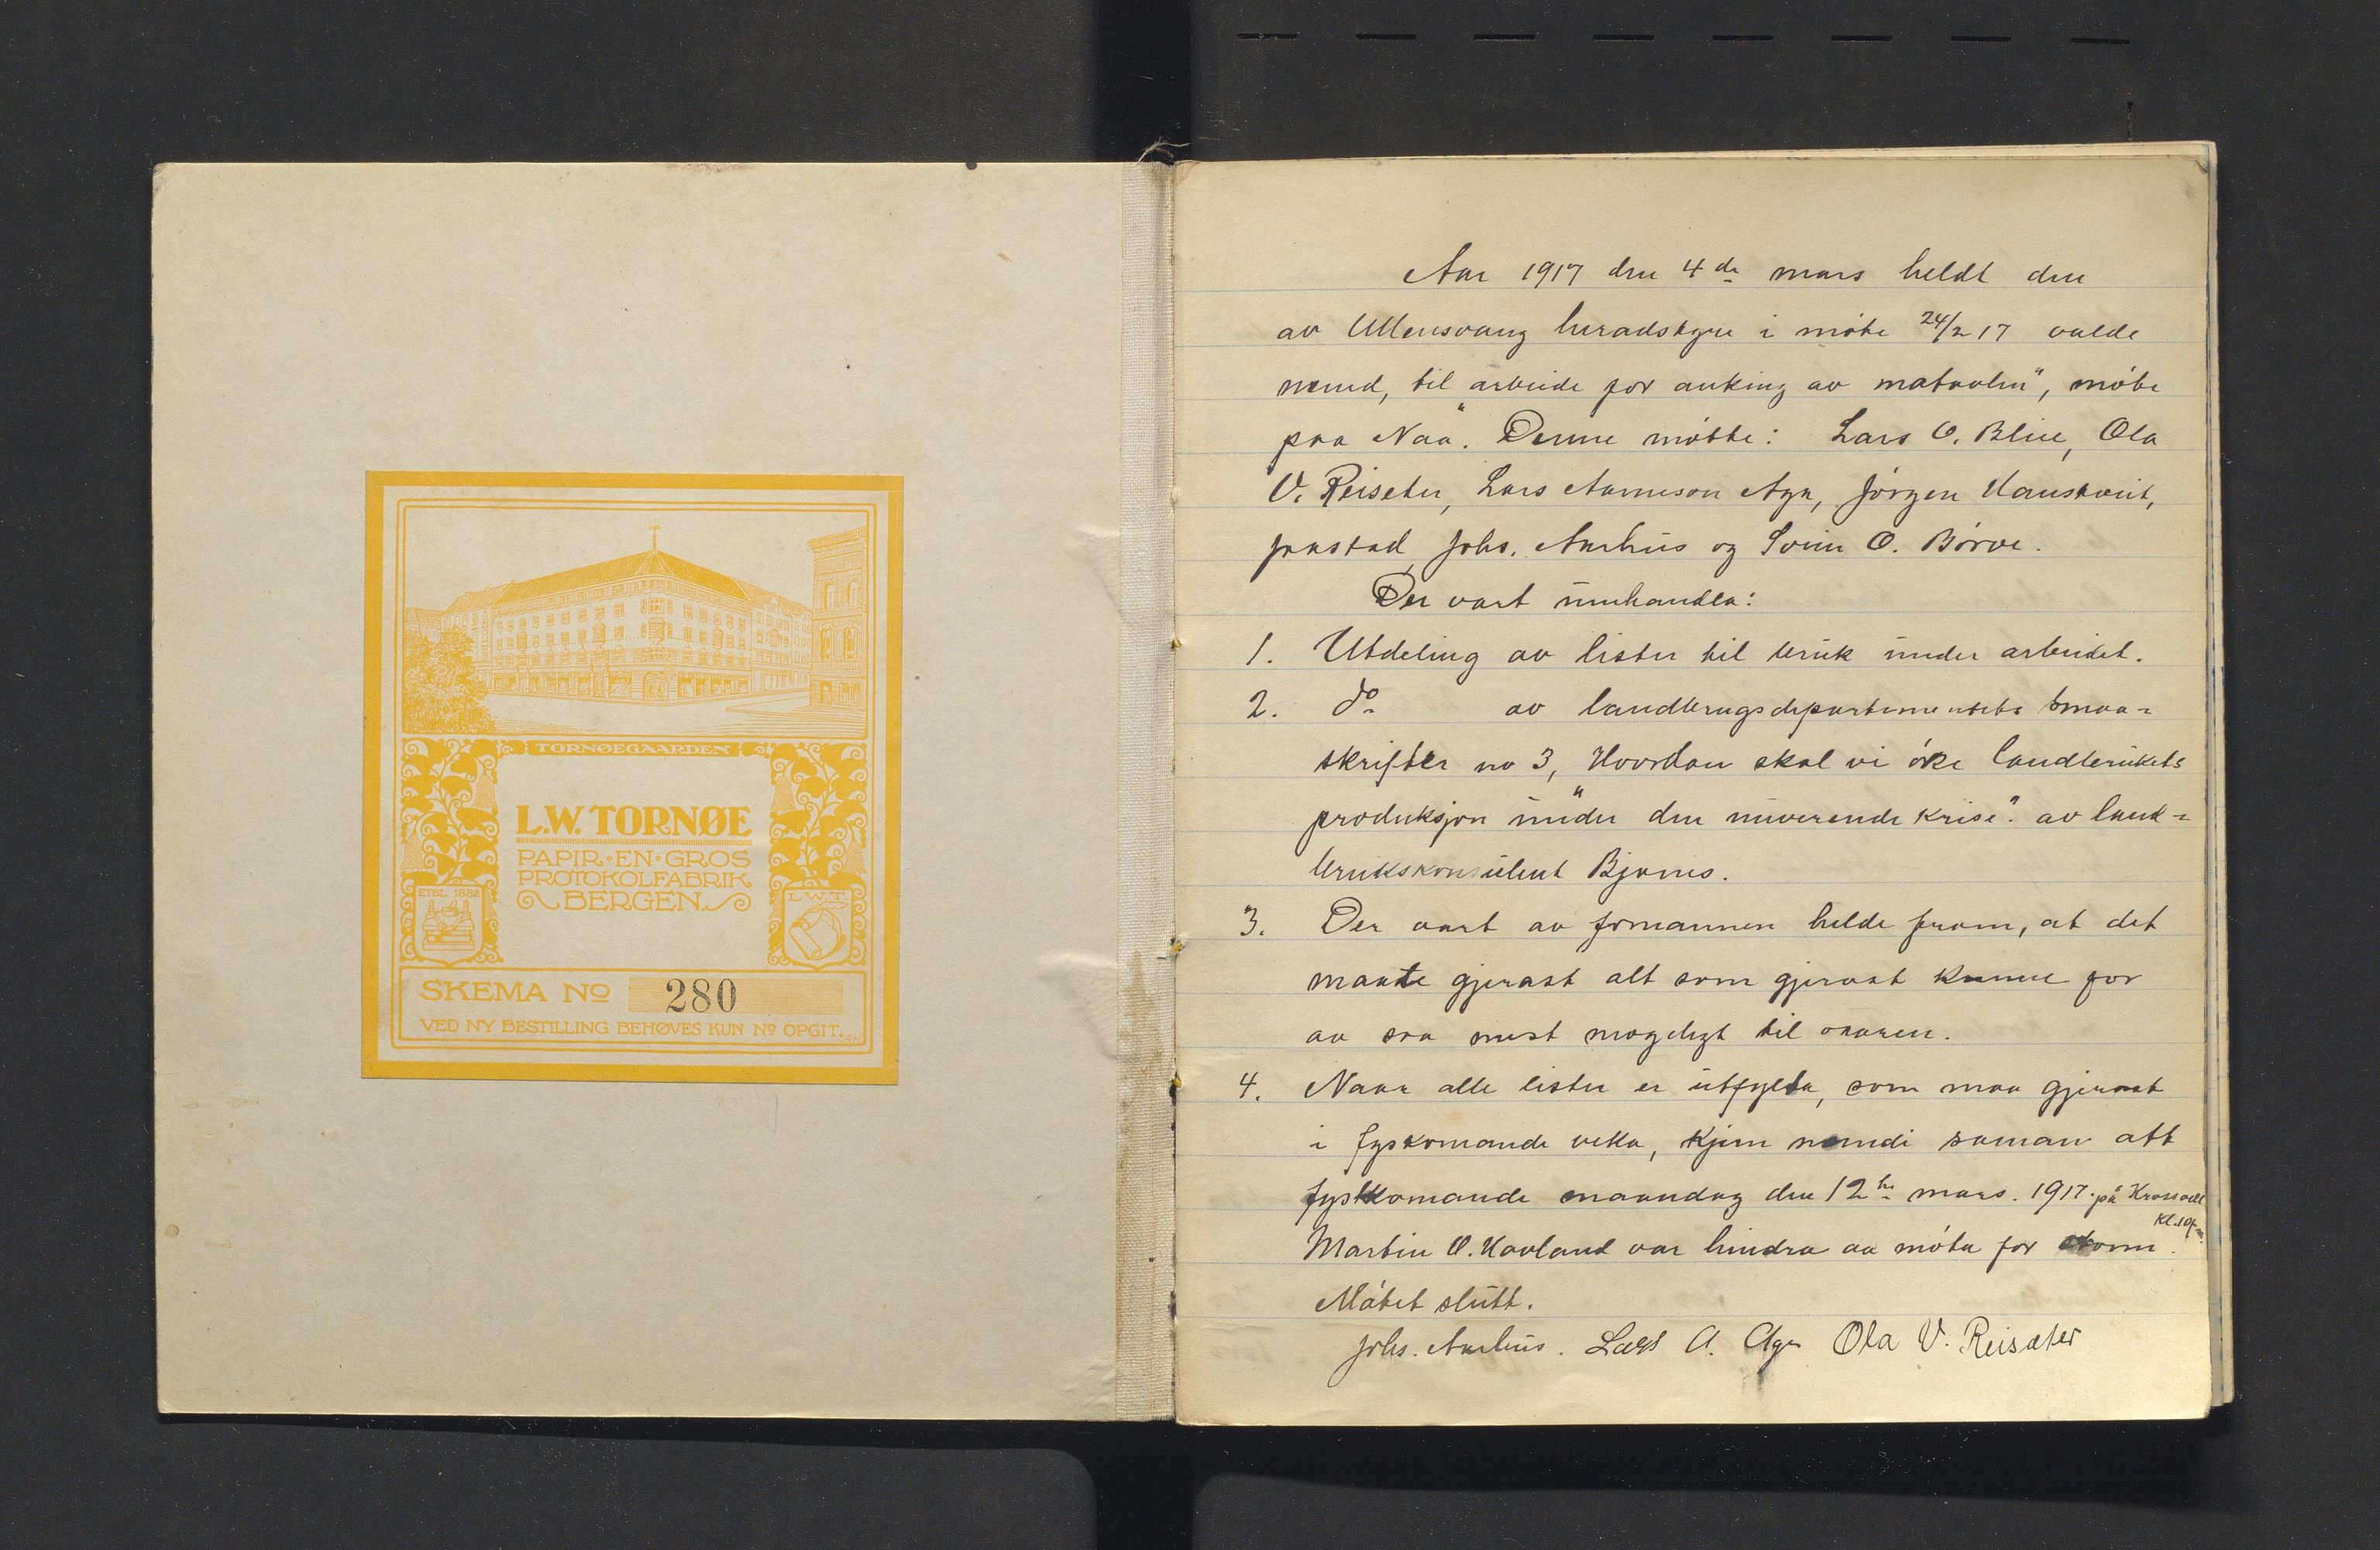 TORNØEGAARDEN
L.W. TORNØE
PAPIR·EN·GROS
PROTOKOLFABRIK
BERGEN
ETBL. 1882
L.W.T.
SKEMA No 280
VED NY BESTILLING BEHØVES KUN No OPGIT.
Aar 1917 den 4de mars heldt den
av Ullensvang heradstyre i møte 24/2 17 valde
nemd, til "arbeide for auking av matavlen", møte
paa Naa. Denne møtte: Lars O. Blie, Ola
V. Reiseter, Lars Aameson Aga, Jørgen Hauskveit,
Jaastad, Johs. Aarhus og Svein O. Børve.
Der vart umhandla:
1. Utdeling av lister til bruk under arbeidet.
2. do av landbrugsdepartementets smaa=
skrifter no 3, "Hvordan skal vi øke landbrukets
produksjon under den nuverende krise". av land=
brukskonsulent Bjanes.
3. Der vart av formannen helde fram, at det
maate gjerast alt som gjerast kunne for
aa saa mest mogelegt til vaaren.
4. Naar alle lister er utfylta, som maa gjerast
i fyskomande veka, kjem nemdi saman att
fystkomande maandag den 12te mars. 1917. på Krossvoll
kl. 10 fm.
Martin O. Hovland var hindra aa møta for storm.
Møtet slutt.
Johs. Aarhus. Lars A. Aga Ola V. Reisæter